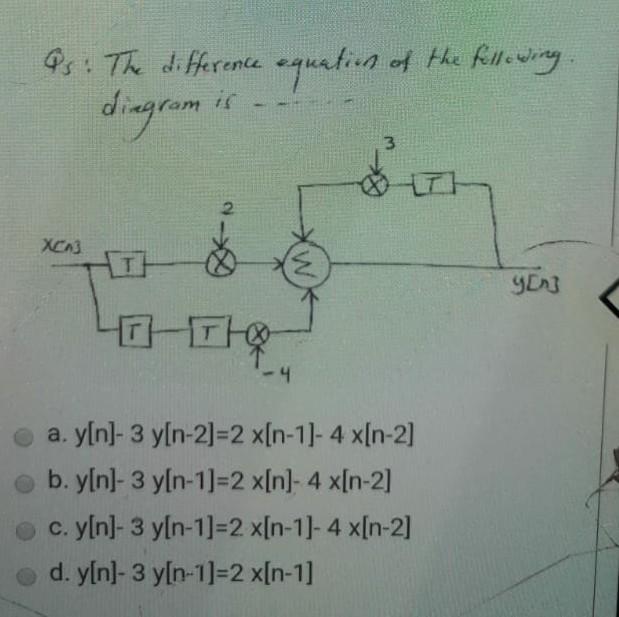 Q5: The difference equation of the following.
diagram is ------
3
T
2
x[n]
T
Σ
y[n]
T T
-4
a. y[n]- 3 y[n-2]=2 x[n-1]- 4 x[n-2]
b. y[n]- 3 y[n-1]=2 x[n]- 4 x[n-2]
c. y[n]- 3 y[n-1]=2 x[n-1]- 4 x[n-2]
d. y[n]- 3 y[n-1]=2 x[n-1]